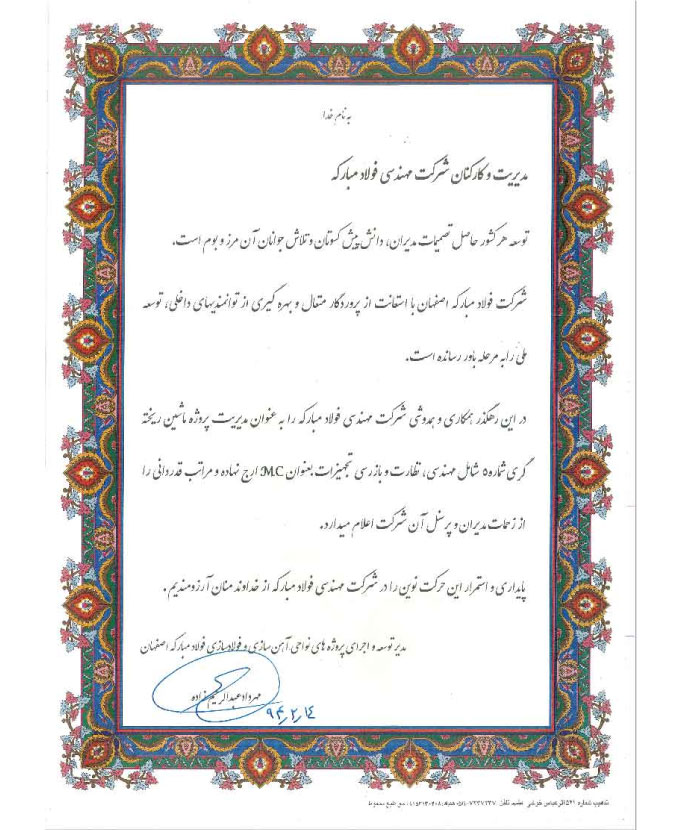 به نام خدا
مدیریت و کارکنان شرکت مهندسی فولاد مبارکه
توسعه هر کشور حاصل تصمیمات مدیران، دانش پیش کسوتان و تلاش جوانان آن مرز و بوم است.
شرکت فولاد مبارکه اصفهان با استعانت از پروردگار متعال و بهره گیری از توانمندیهای داخلی، توسعه
ملی را به مرحله باور رسانده است.
در این رهگذر همکاری و همدوشی شرکت مهندسی فولاد مبارکه را به عنوان مدیریت پروژه ماشین ریخته
گری شماره ۵ شامل مهندسی، نظارت و بازرسی تجهیزات بعنوان MC ارج نهاده و مراتب قدردانی را
از زحمات مدیران و پرسنل آن شرکت اعلام میدارد.
پایداری و استمرار این حرکت نوین را در شرکت مهندسی فولاد مبارکه از خداوند منان آرزومندیم.
مدیر توسعه و اجرای پروژه های نواحی آهن سازی و فولادسازی فولاد مبارکه اصفهان
مهرداد عبدالکریم زاده
۹۴,۲,۱۴
تذهیب شماره ۵۲۱ اثر عباس